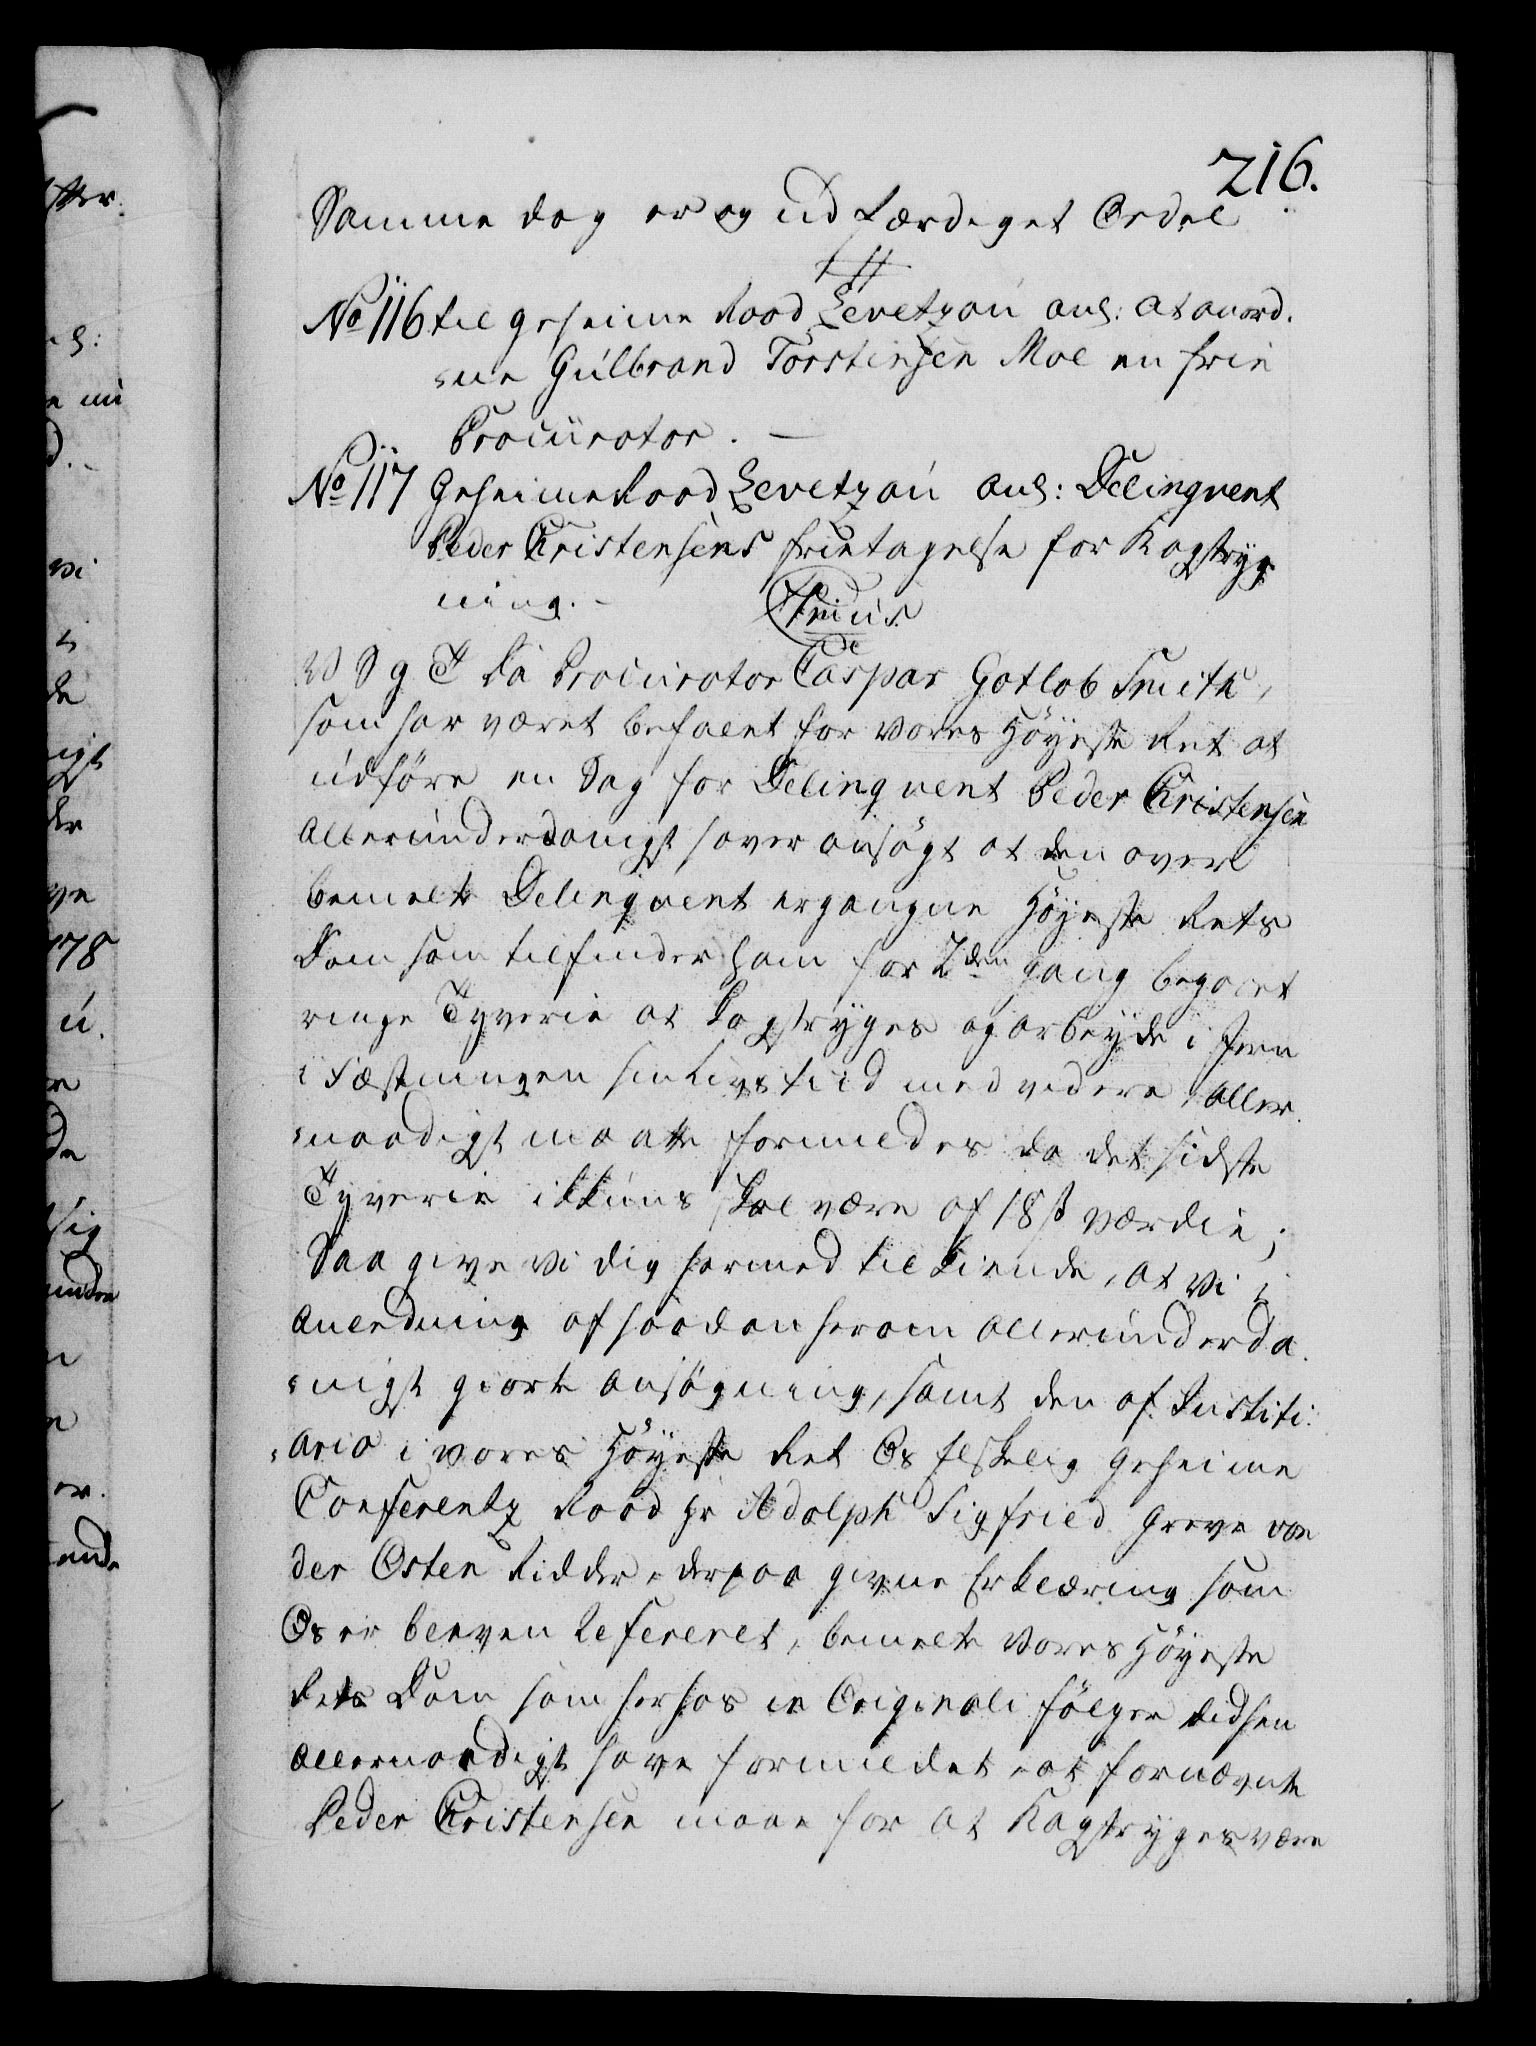 216.
Samme dag er og udfærdiget Ordre
No 116 til Geheime Raad Levetzau anl: at anord-
-ne Gulbrand Torstensen Moe en frie
Procurator. —
No 117 Geheime Raad Levetzau anl: Delinqvent
Peder Christensens fritagelse for Kagstryg
ning. -
V S g T Da Procurator Caspar Gotlob Smith,
som har været befalet for Vores Høyeste Ret at
udføre en Sag for Delinqvent Peder Christensen
allerunderdanigst haver ansøgt at den over
bemelte Delinqvent ergangne Høyeste Rets
Dom som tilfinder ham for 2den gang begaaet
ringe Tyverie at Kagstryges og arbeyde i Jern
i Fæstningen sin Livs tiid med videre, aller-
-naadigst maatte formildes da det sidste
Tyverie ikkuns skal være af 18 s værdie;
Saa give Vi dig hermed tilkiende, at Vi i
Anledning af saadan herom allerunderda-
-nigst giorte ansøgning, samt den af Justiti-
-ario i Vores Høyeste Ret Os Elskelig Geheime
Conferentz Raad Hr Adolph Sigfried Greve von
der Osten Ridder, derpaa givne Erklæring som
Os er bleven Refereret, bemelte Vores Høyeste
Rets Dom som herhos in Originali følger
allernaadigst have formildet, at fornævnte
Peder Christensen maae for at Kagstryges være